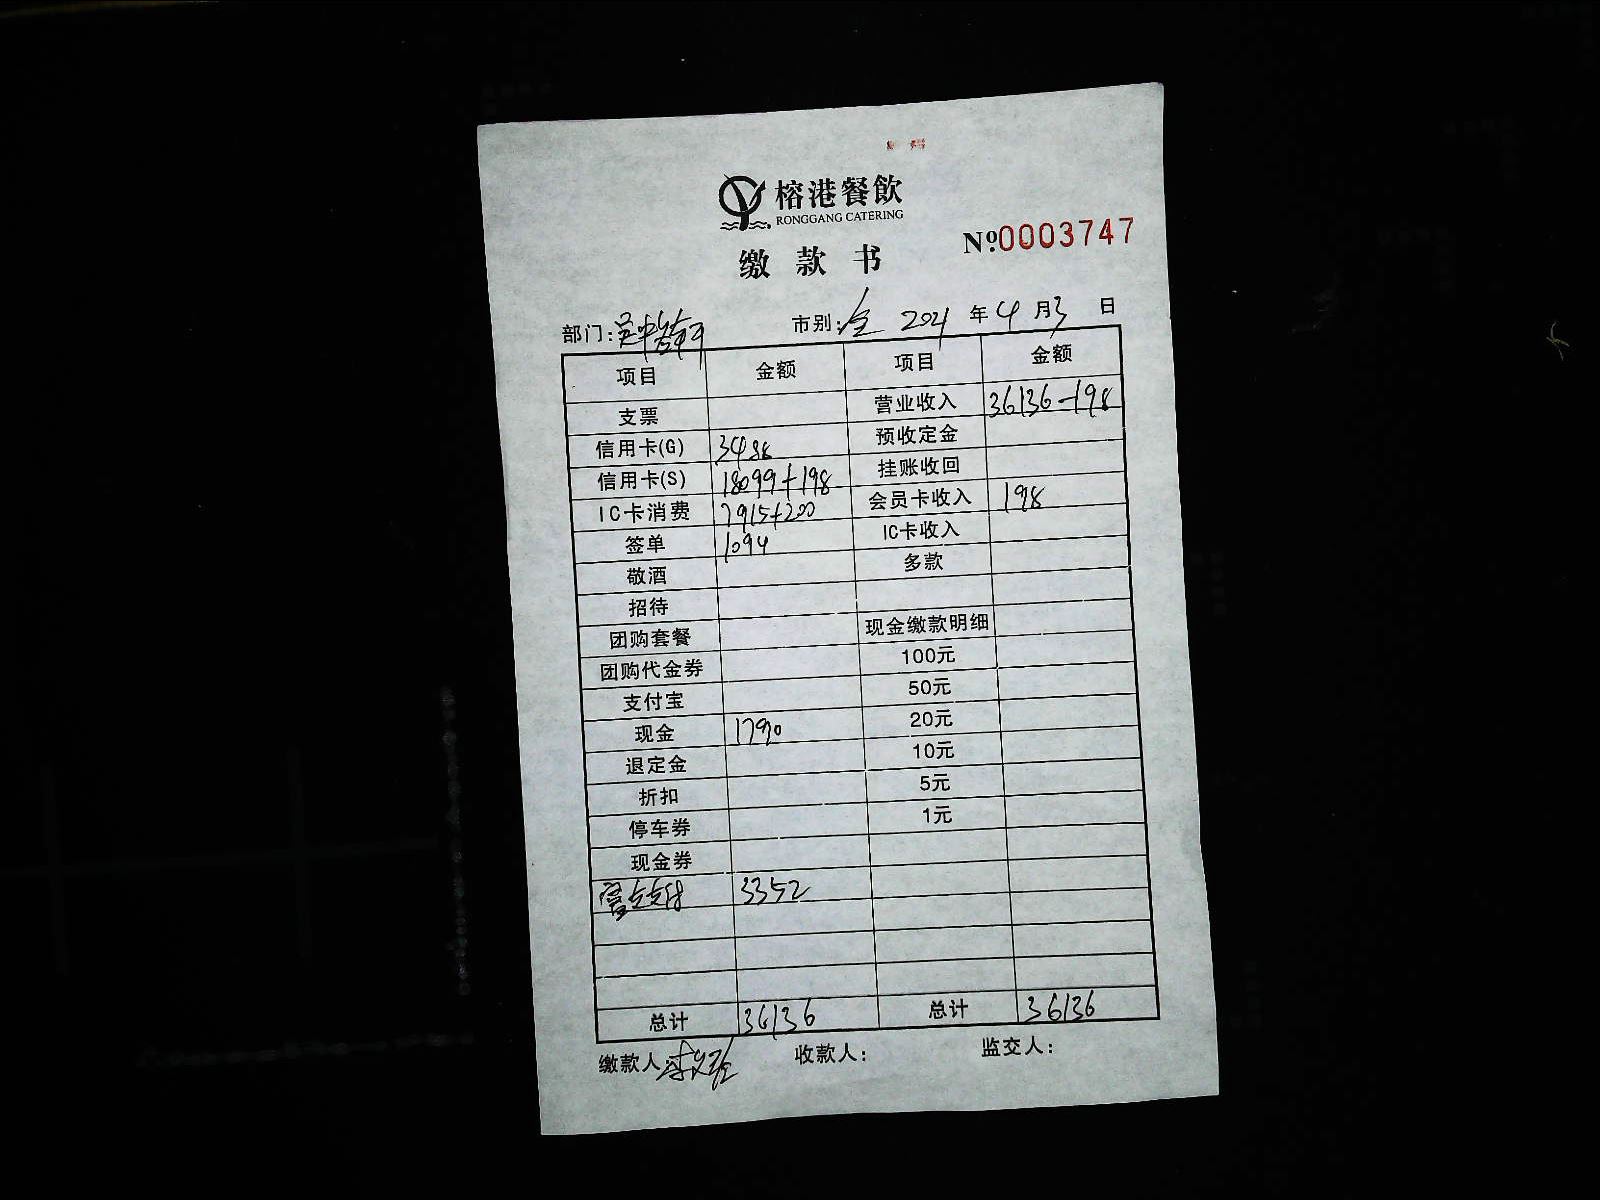 榕港餐飲
RONGGANG CATERING
缴款书
№0003747
部门: 市别:全 2021 年 4 月 3 日
项目 金额 项目 金额
支票 营业收入 36136-198
信用卡(G) 3488 预收定金
信用卡(S) 18099+198 挂账收回
IC卡消费 7915+200 会员卡收入 198
签单 1094 IC卡收入
敬酒 多款
招待
团购套餐 现金缴款明细
团购代金券 100元
支付宝 50元
现金 1790 20元
退定金 10元
折扣 5元
停车券 1元
现金券
支付 3352
总计 36136 总计 36136
缴款人: 收款人: 监交人: